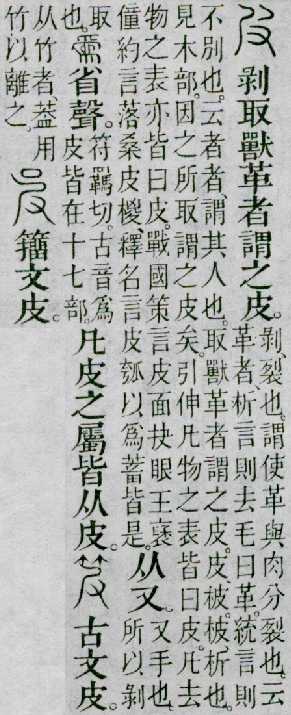 剝取獸革者謂之皮。
剝、裂也。謂使革與肉分裂也。云
革者析言則去毛曰革。統言則
不別也。云者者、謂其人也。取獸革者謂之皮。皮、柀。柀、析也。
見木部。因之所取謂之皮矣。引伸凡物之表皆曰皮。凡去
物之表亦皆曰皮。戰國策言皮面抉眼王襃
僮約言落桑皮㮨、釋名言皮瓠以爲蓄皆是。
从又。
又手也。
所以剝
取
也。
省聲。
符羈切。古音爲
皮皆在十七部。
凡皮之屬皆从皮。
古文皮。
从竹者、葢用
竹以離之。
籒文皮。